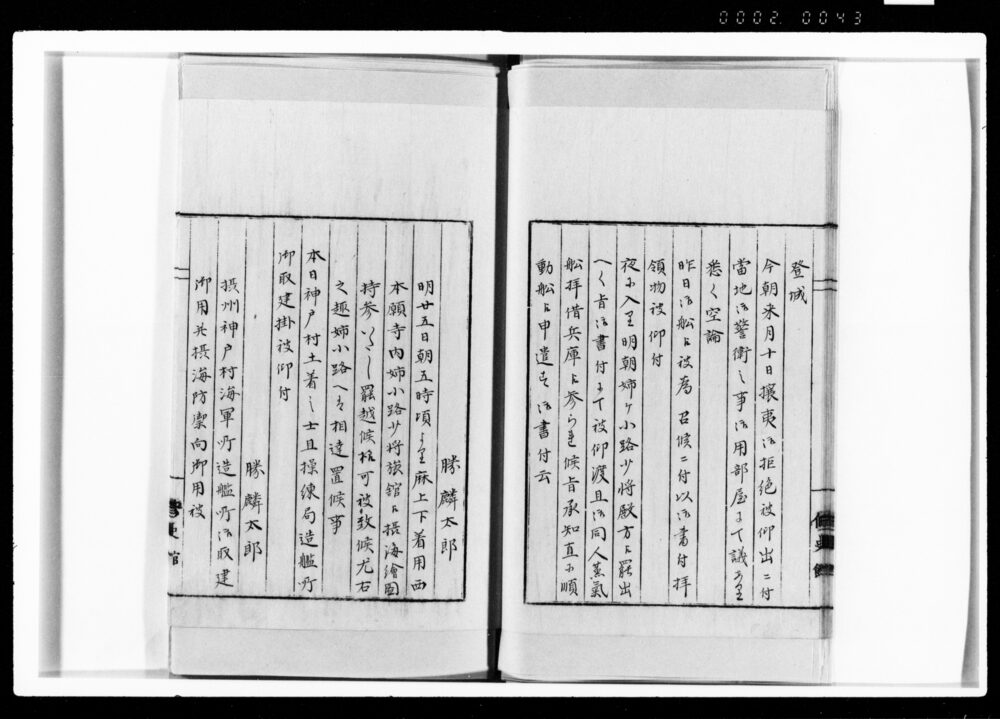 0002 0043
登城
今朝来月十日攘夷御拒絶被仰出ニ付
當地御警衛之事御用部屋ニて議あり
悉く空論
昨日御船ゟ被為召候ニ付以御書付拝
領物被仰付
夜ニ入り明朝姉ヶ小路少将殿方ゟ罷出
へく旨御書付ニて被仰渡且御同人蒸氣
船拝借兵庫ゟ参られ候旨承知直ニ順
動船ゟ申遣す御書付云
勝麟太郎
明廿五日朝五時頃より麻上下着用西
本願寺内姉小路少将旅館ゟ摂海繪図
持参いたし罷越候様可被致候尤右
之趣姉小路へも相達置候事
本日神戸村土着之士且操練局造艦所
御取建掛被仰付
勝麟太郎
摂州神戸村海軍所造艦所御取建
御用并摂海防禦向御用被
修史館